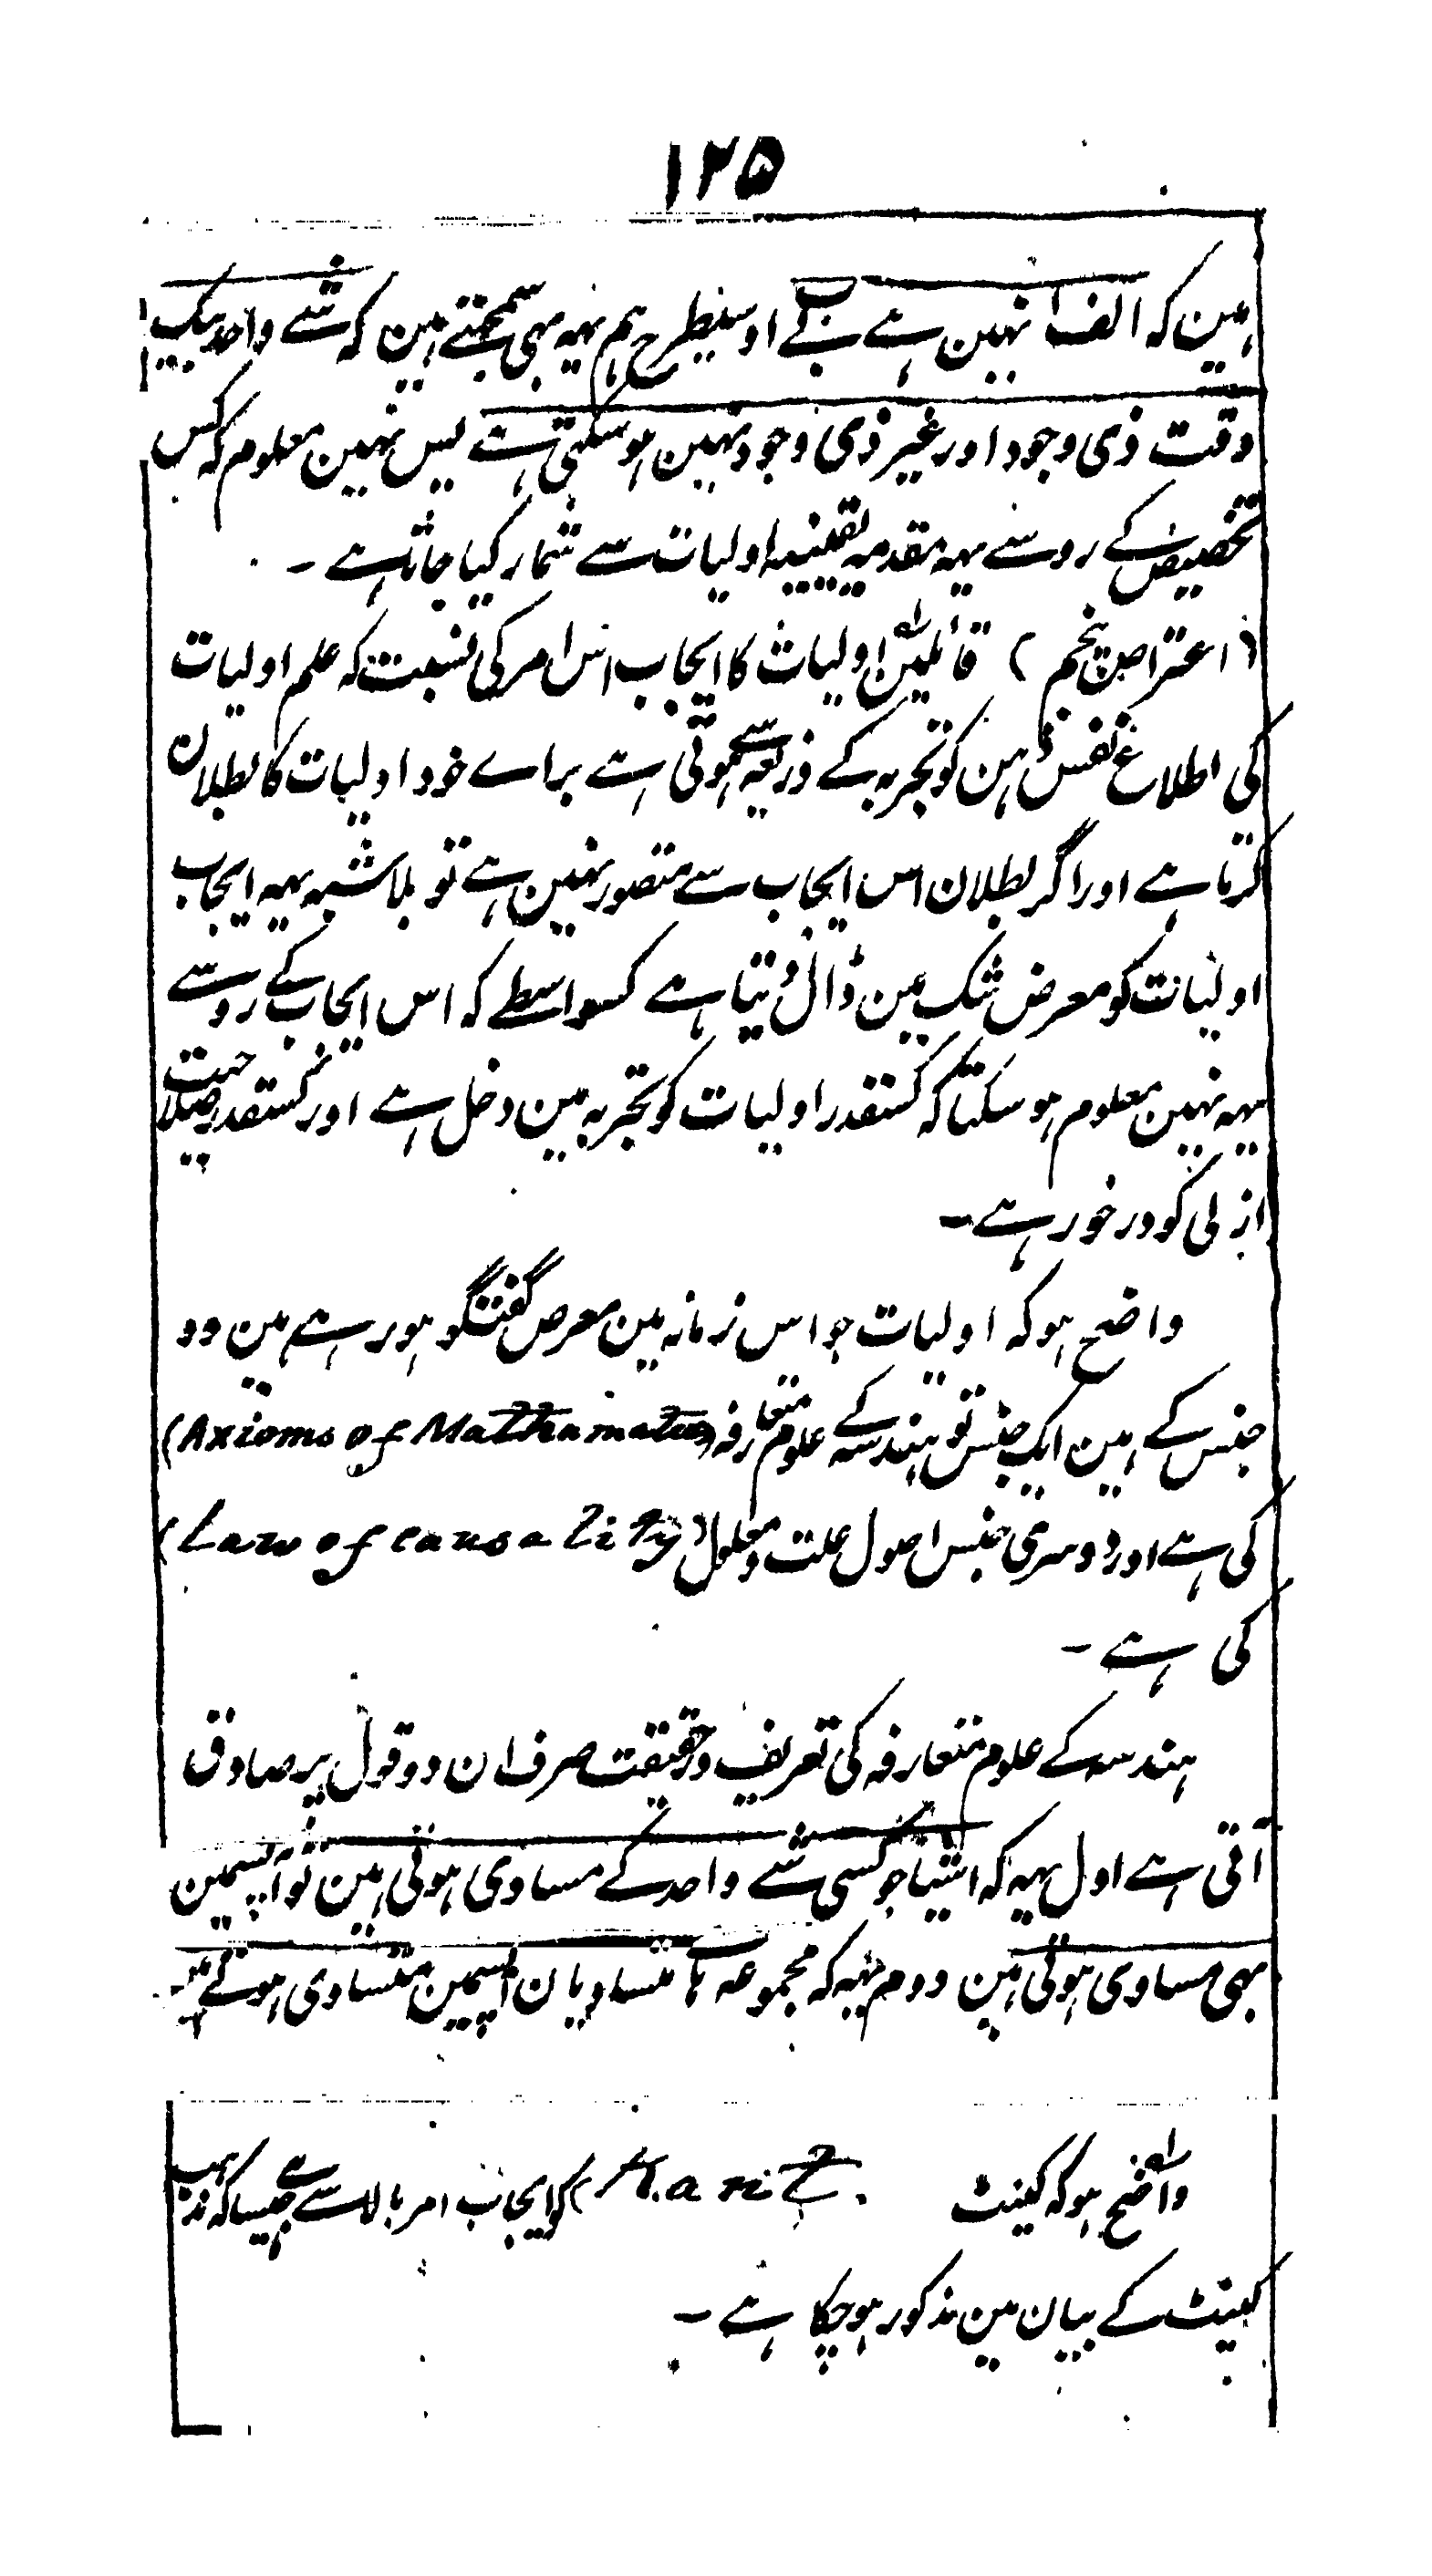 ۱۲۵
ہین کہ الف نہین ہے بے اوسیطرح ہم یہہ بہی سمجہتے ہین کہ شے واحد بیک
وقت ذی وجود اور غیر ذی وجود نہین ہو سکتی ہے پس نہین معلوم کہ کس
تخصیص کے روسے یہہ مقدمہ یقینیہ اولیات سے شمار کیا جاتا ہے ۔
(اعتراض پنجم) قائلین اولیات کا ایجاب اس امر کی نسبت کہ علم اولیات
کی اطلاع نفس ذہن کو تجربہ کے ذریعہ سے ہوتی ہے براے خود اولیات کا بطلان
کرتا ہے اور اگر بطلان اس ایجاب سے متصور نہین ہے تو بلا شبہ یہہ ایجاب
اولیات کو معرض شک مین ڈال دیتا ہے کسواسطے کہ اس ایجاب کے روسے
یہہ نہین معلوم ہو سکتا کہ کسقدر اولیات کو تجربہ مین دخل ہے اور کسقدر صلاحیت
ازلی کو درخور ہے ۔
واضح ہو کہ اولیات جو اس زمانہ مین معرض گفتگو ہو رہے ہین دو
جنس کے ہین ایک جنس تو ہندسہ کے علوم متعارفہ (Axioms of Mathematics)
کی ہے اور دوسری جنس اصول علت و معلول (Law of causality)
کی ہے ۔
ہندسہ کے علوم متعارفہ کی تعریف درحقیقت صرف ان دو قول پر صادق
آتی ہے اول یہہ کہ اشیا جو کسی شے واحد کے مساوی ہوتی ہین تو آپسمین
بہی مساوی ہوتی ہین دوم یہہ کہ مجموعہ ہا متساویان آپسمین متساوی ہوتے ہین
واضح ہو کہ کینٹ کو ایجاب امر بالا سے ہے جیسا کہ مذہب
کینٹ کے بیان مین مذکور ہو چکا ہے ۔